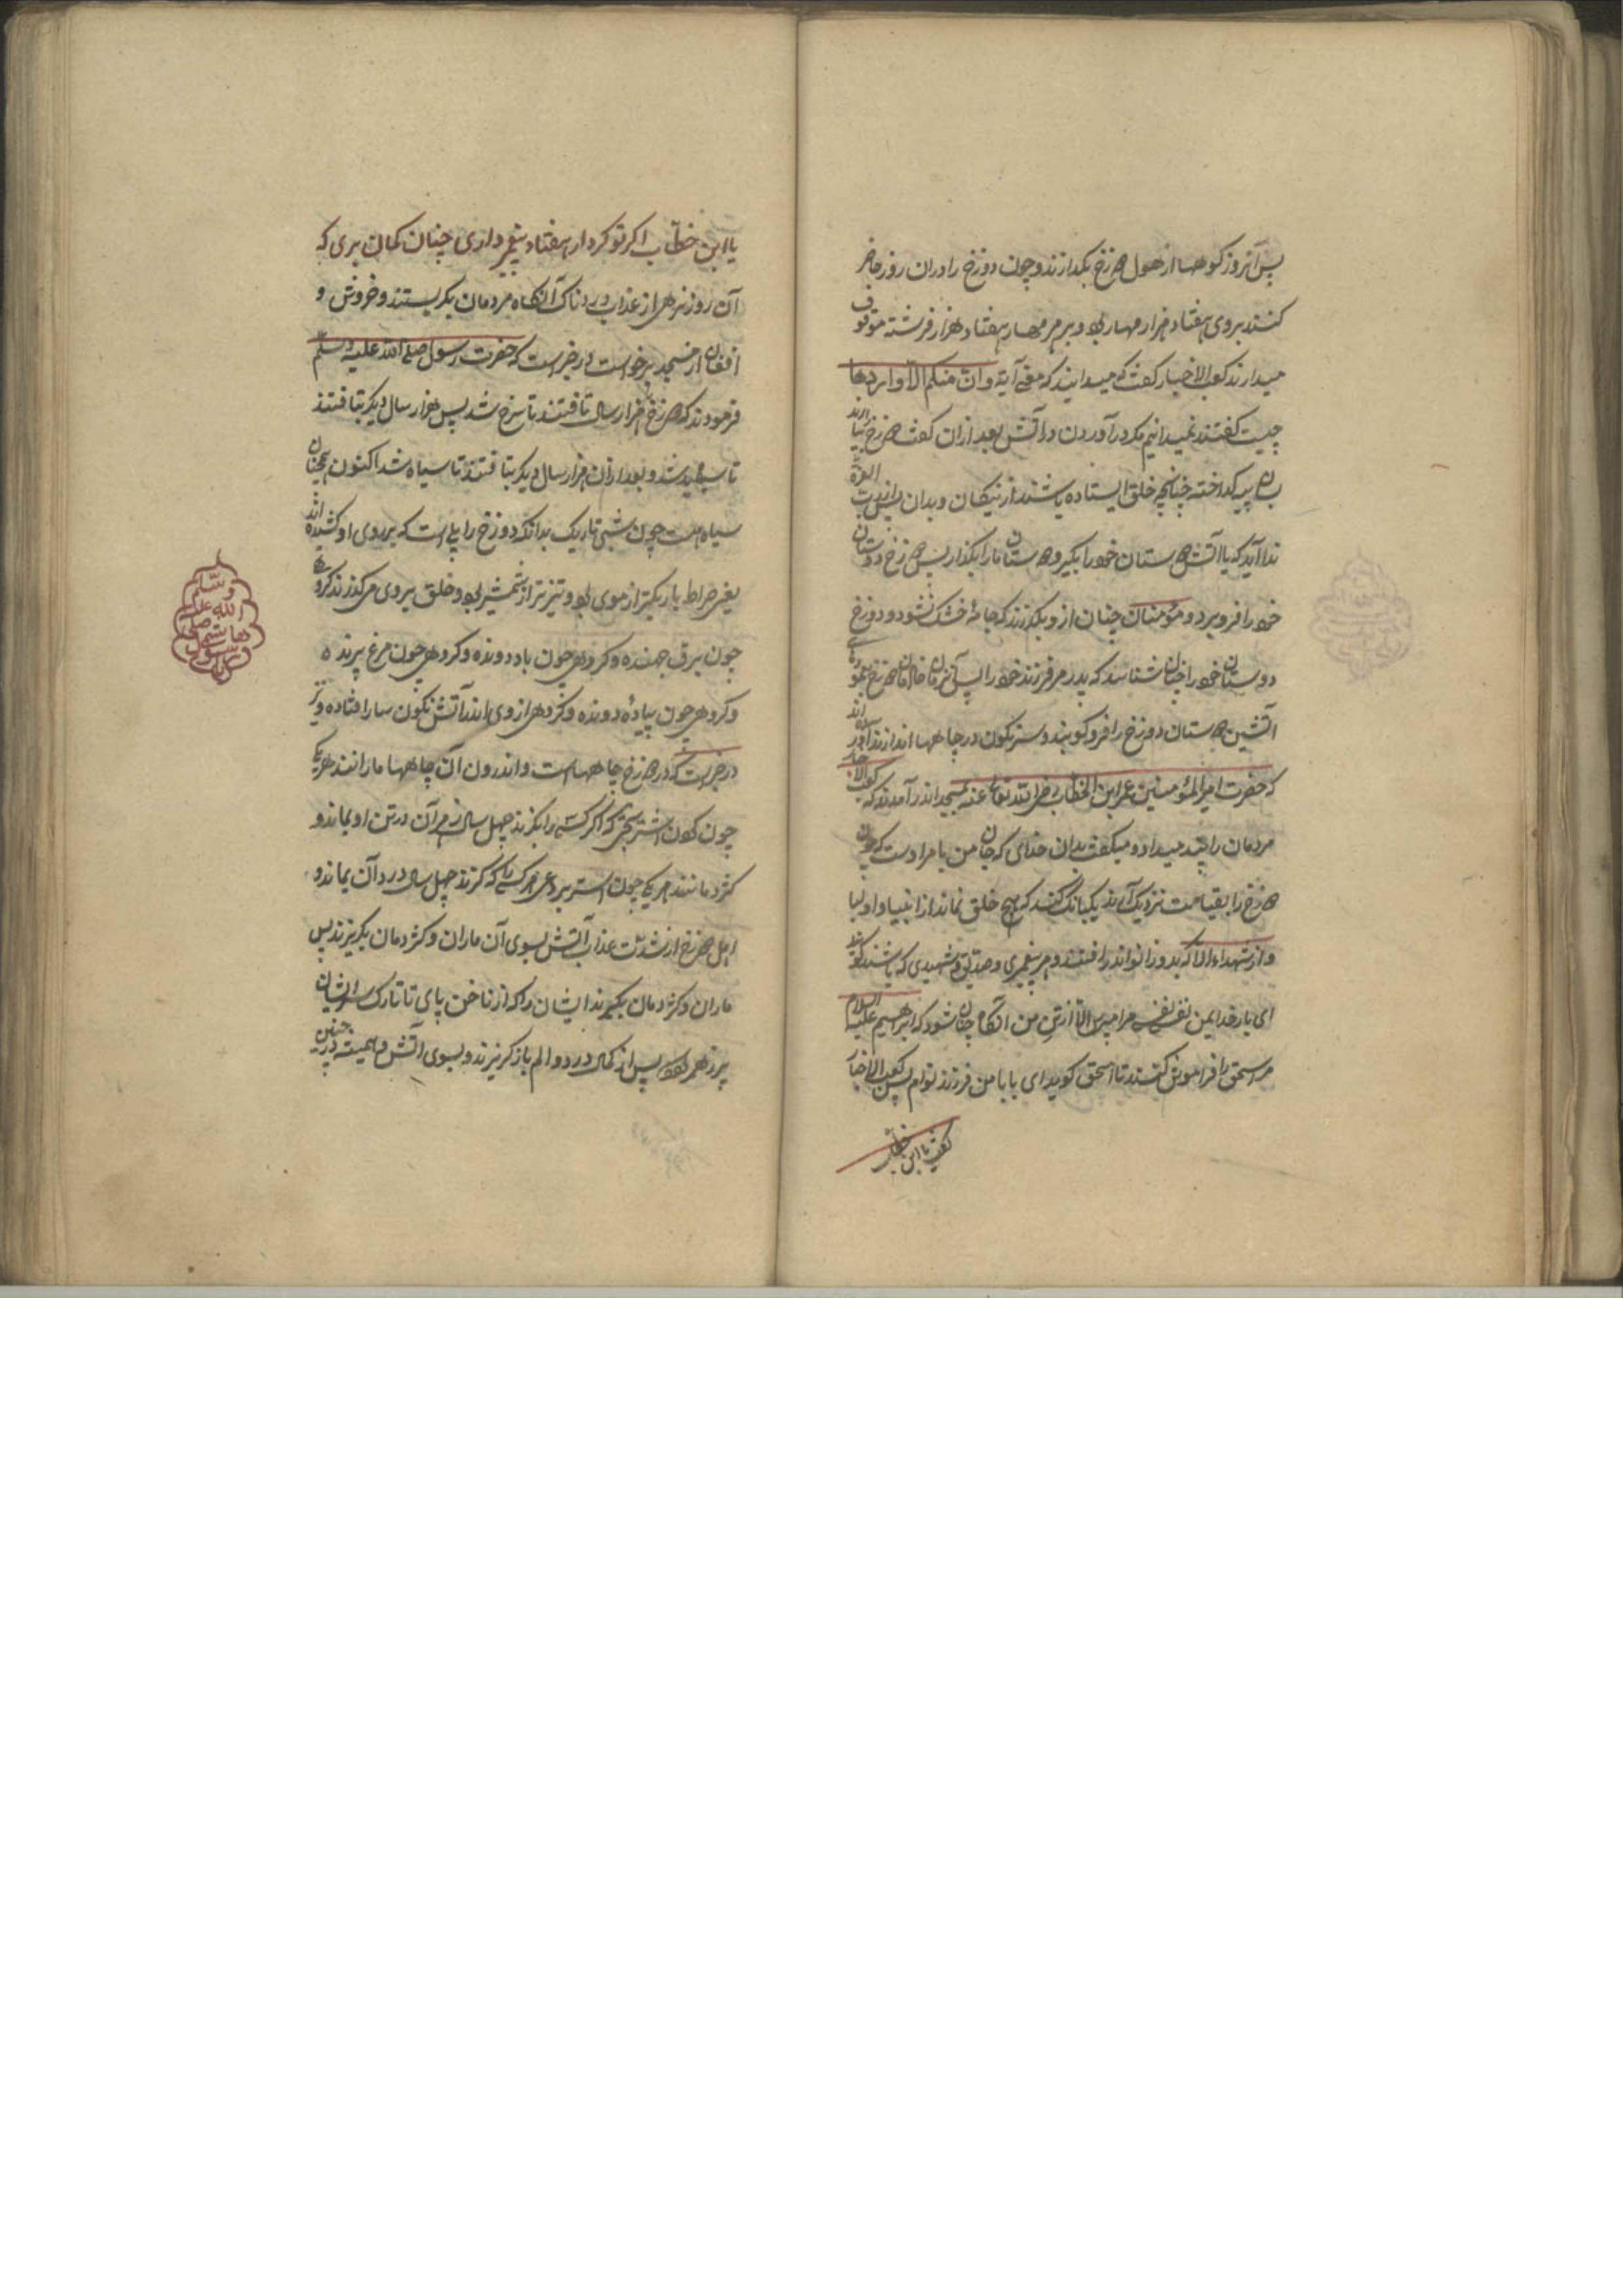 پس آنروز کوهها از هول دوزخ بگدازند و چون دوزخ را در آن روز حاضر
کنند بر وی هفتاد هزار مهار بود و بر هر مهار هفتاد هزار فرشته موقوف
میدارند کعب الاخبار گفت که میدانید که معنی آیة وان منکم الا واردها
چیست گفتند نمیدانیم مگر درآوردن در آتش بعد ازان گفت دوزخ بیارند
پیه گداخته چنانچه خلق ایستاده باشند از نیکان و بدان پس از رب العزة
ندا آید که یا آتش دوستان خود را بگیر و دوستان ما را بگذار پس دوزخ دوستان
خود را فرو برد و مؤمنان چنان از و بگذرند که جامهٔ خشک نشود و دوزخ
دوستان خود را چنان شناسد که پدر مر فرزند خود را پس آنزمان خازنان دوزخ بعمودهای
آتشین دوستان دوزخ را فرو کوبند و سرنگون در چاهها اندازند آورده اند
که حضرت امیر المؤمنین عمر ابن الخطاب رضی الله تعالی عنه بمسجد اندر آمدند که کعب الاخبار
مردمان را پند میداد و میگفت بدان خدای که جان من بامر اوست که چون
دوزخ را بقیامت نزدیک آرند یکبانگ کند که هیچ خلق نماند از انبیا و اولیا
و از شهداء الا که بدو زانو اندر افتند و هر پیغمبری و صدیق و شهیدی که باشند گوید
ای بار خدا یمن نفسی نفسی مرا مپرس الا از تن من آنگاه چنان شود که ابراهیم علیه السلام
مر اسحق را فراموش کنند تا اسحق گوید ای بابا من فرزند توام پس کعب الاخبار
گفت یا ابن خطاب
یا ابن خطاب اگر تو کردار هفتاد پیغمبر داری چنان گمان بری که
آن روز نرهی از عذاب دردناک آنگاه مردمان بگریستند و خروش و
افغان از مسجد برخواست در خبر است که حضرت رسول صلی الله علیه وسلم
فرمودند که دوزخ هزار سال تافتند تا سرخ شد پس هزار سال دیگر بتافتند
تا سپید شد و بعد ازان هزار سال دیگر بتافتند تا سیاه شد اکنون همچنان
سیاه است چون شبی تاریک بدانکه دوزخ را پلی است که بر روی او کشیده اند
یعنی صراط باریکتر از موی بود و تیزتر از شمشیر بود و خلق بروی می گذرند گروهی
چون برق جهنده و گروهی چون باد دونده و گروهی چون مرغ پرنده
و گروهی چون پیادهٔ دونده و گروهی از وی اندر آتش نگونسار افتاده و نیز
در خبر است که در دوزخ چاهها است و اندرون آن چاهها مارانند هر یکی
چون گردن اشتر بختی که اگر کسی را بگزند چهل سال زهر آن در تن او بماند و
کژدمانند هر یکی چون استر بردعی هر کسی را که گزند چهل سال درد آن بماند و
اهل دوزخ از شدت عذاب آتش بسوی آن ماران و کژدمان بگریزند پس
ماران و کژدمان بگیرند ایشان را که از ناخن پای تا تارک سر ایشان
پر زهر شود پس از کمال درد و الم باز گریزند و بسوی آتش و همیشه درین چنین